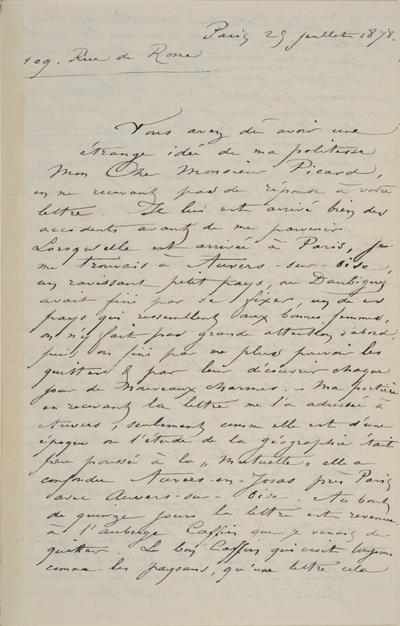 Paris 29 juillet 1878.
109. Rue de Rome
Vous avez dû avoir une
étrange idée de ma politesse
Mon Cher Monsieur Picard,
en ne recevant pas de réponse à votre
lettre. Il lui est arrivé bien des
accidents avant de me parvenir.
Lorsqu'elle est arrivée à Paris, je
me trouvais à Auvers-sur-Oise,
un ravissant petit pays, où Daubigny
avait fini par se fixer, un de ces
pays qui ressemblent aux bonnes femmes,
on n'y fait pas grande attention d'abord,
puis on fini par ne plus pouvoir les
quitter & par leur découvrir chaque
jour de Nouveaux charmes. - Ma portière
en recevant la lettre me l'a adressée à
Auvers, seulement comme elle est d'une
époque où l'étude de la géographie était
peu poussée à la "Mutuelle" elle a
confondu Auvers-en-Josas près Paris
avec Auvers-sur-Oise. Au bout
de quinze jours la lettre est revenue
à l'auberge Caffin que je venais de
quitter. Le bon Caffin qui croit toujours
comme les paysans, qu'une lettre cela